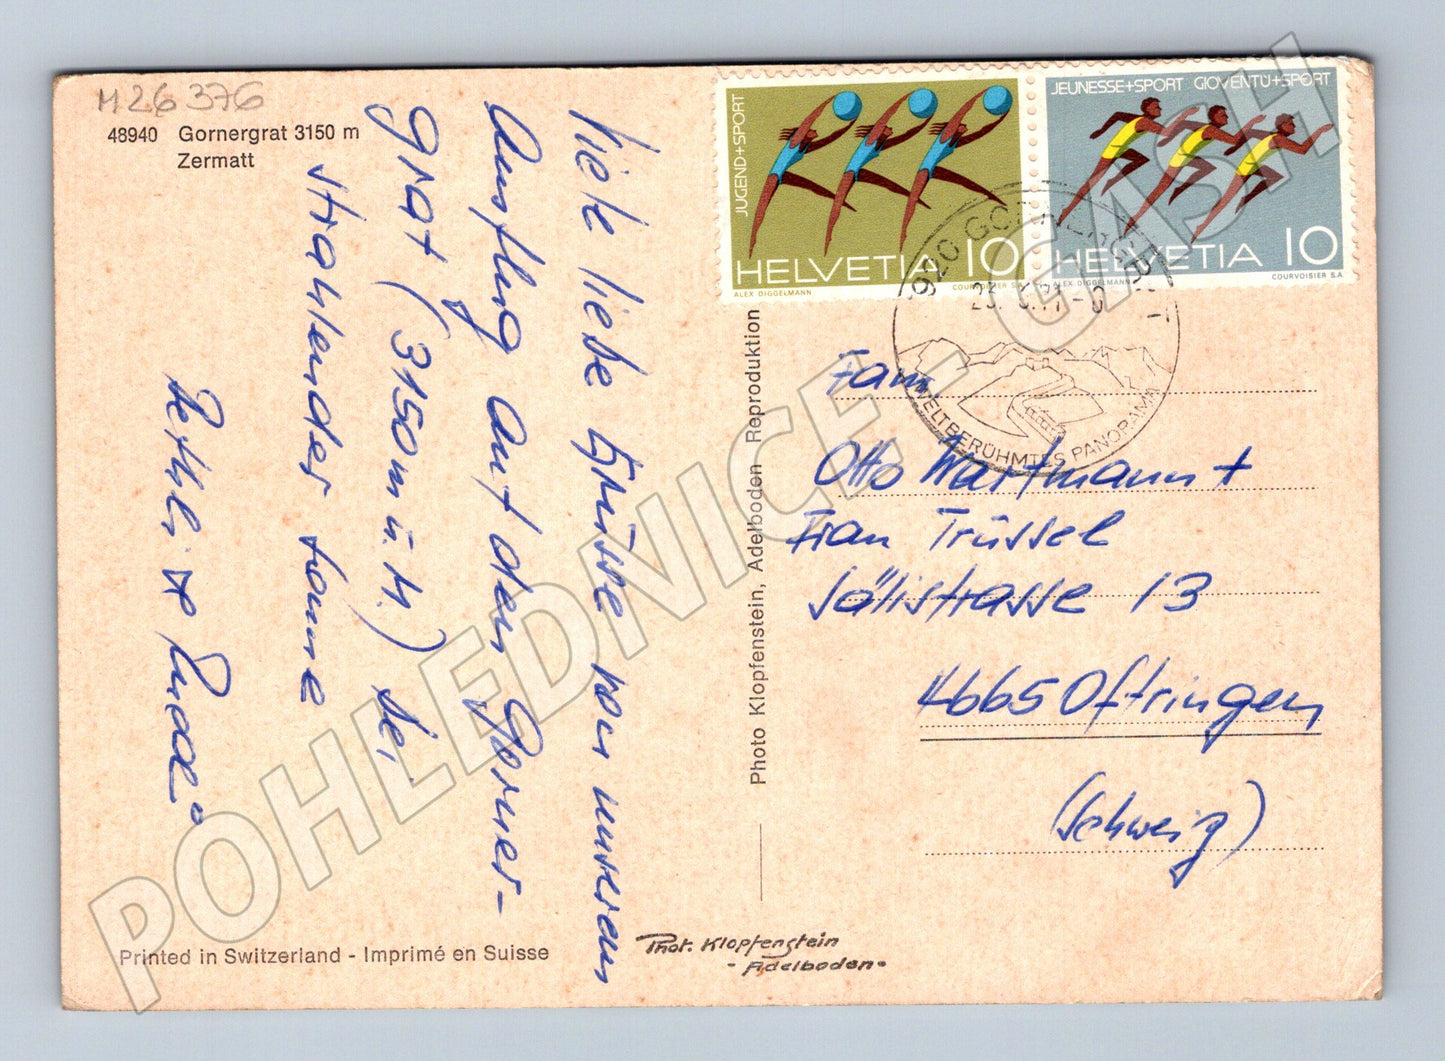 M 26 376
48940 Gornergrat 3150 m
Zermatt
Viele liebe Grüsse von unserem
Ausflug auf den Gorner-
grat (3150m ü.M.) bei
strahlender Sonne
Bethli +
JUGEND+SPORT
HELVETIA 10
ALEX DIGGELMANN COURVOISIER S.A.
JEUNESSE+SPORT GIOVENTÙ+SPORT
HELVETIA 10
ALEX DIGGELMANN COURVOISIER S.A.
3920 GORNERGRAT
WELTBERÜHMTES PANORAMA
Fam.
Otto Wartmann +
Frau Trüssel
Sälistrasse 13
4665 Oftringen
(Schweiz)
Photo Klopfenstein, Adelboden Reproduktion
Printed in Switzerland - Imprimé en Suisse
Phot. Klopfenstein
- Adelboden -
POHLEDNICE - CASH